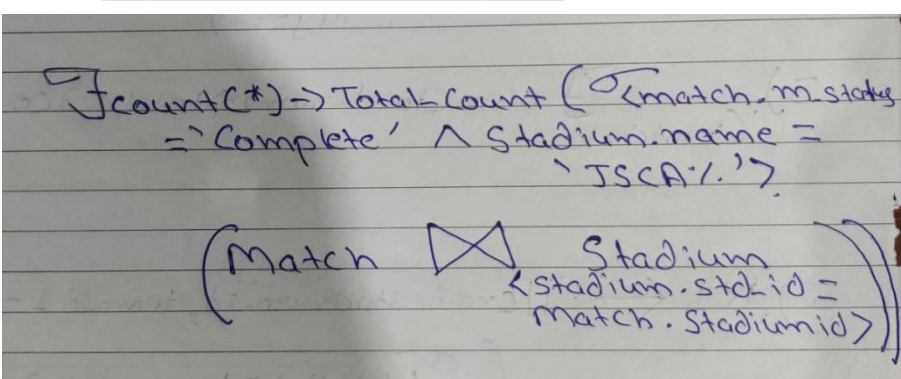 ℑcount(*)→Total_Count (σ<match.m_status
='Complete' ∧ Stadium.name =
'JSCA%'>
(Match ⋈ Stadium
<Stadium.std_id =
Match.Stadiumid>))